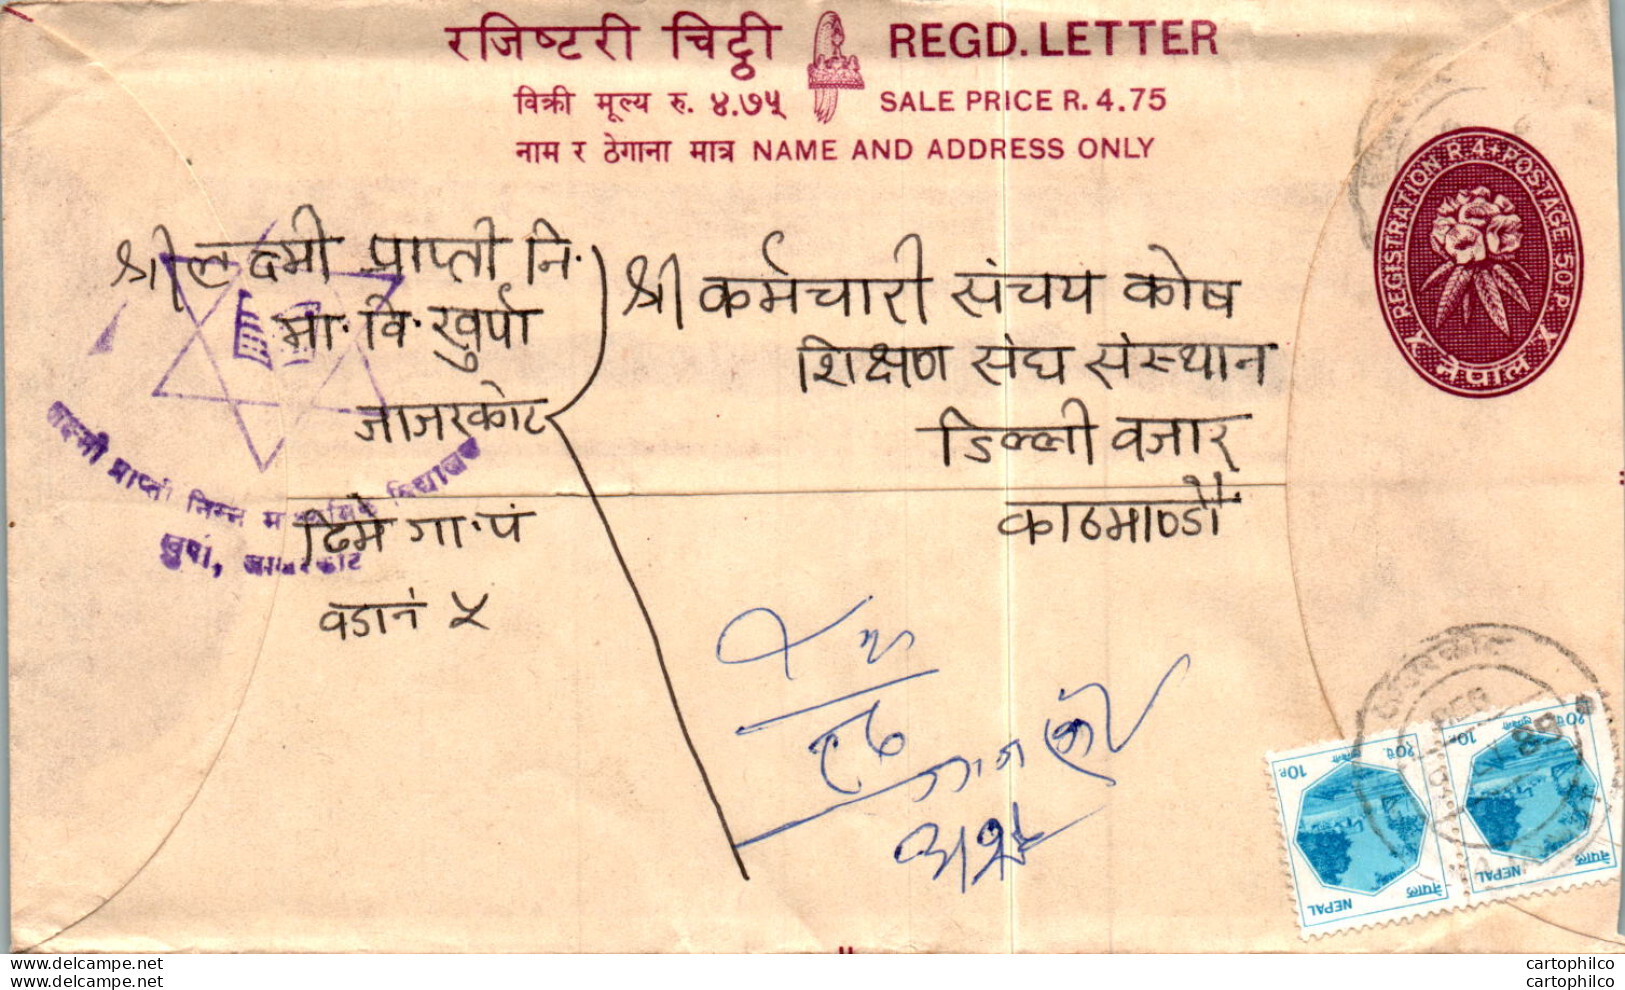 रजिष्टरी चिट्ठी REGD. LETTER
विक्री मूल्य रु. ४.७५ SALE PRICE R. 4.75
नाम र ठेगाना मात्र NAME AND ADDRESS ONLY
X REGISTRATION R.4+POSTAGE 50 P. X
नेपाल
श्री लक्ष्मी प्राप्ती नि.
मा. वि. खुर्पा
जाजरकोट
ढिमे गा. पं
वडा नं ५
श्री कर्मचारी संचय कोष
शिक्षण संघ संस्थान
डिल्ली वजार
काठमाण्डौ
लक्ष्मी प्राप्ती निम्न माध्यमिक विद्यालय
खुर्पा, जाजरकोट
१० पै. 10P.
नेपाल NEPAL
१० पै. 10P.
नेपाल NEPAL
www.delcampe.net
www.delcampe.net
cartophilco
cartophilco